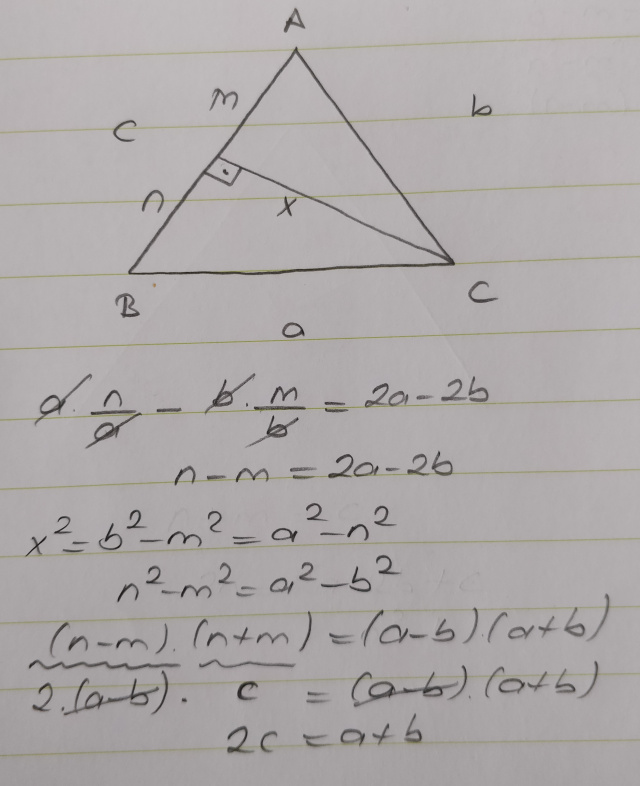 A
m
b
c
n
x
B
C
a
a · n/a − b · m/b = 2a − 2b
n − m = 2a − 2b
x² = b² − m² = a² − n²
n² − m² = a² − b²
(n−m) · (n+m) = (a−b) · (a+b)
2 · (a−b) · c = (a−b) · (a+b)
2c = a + b